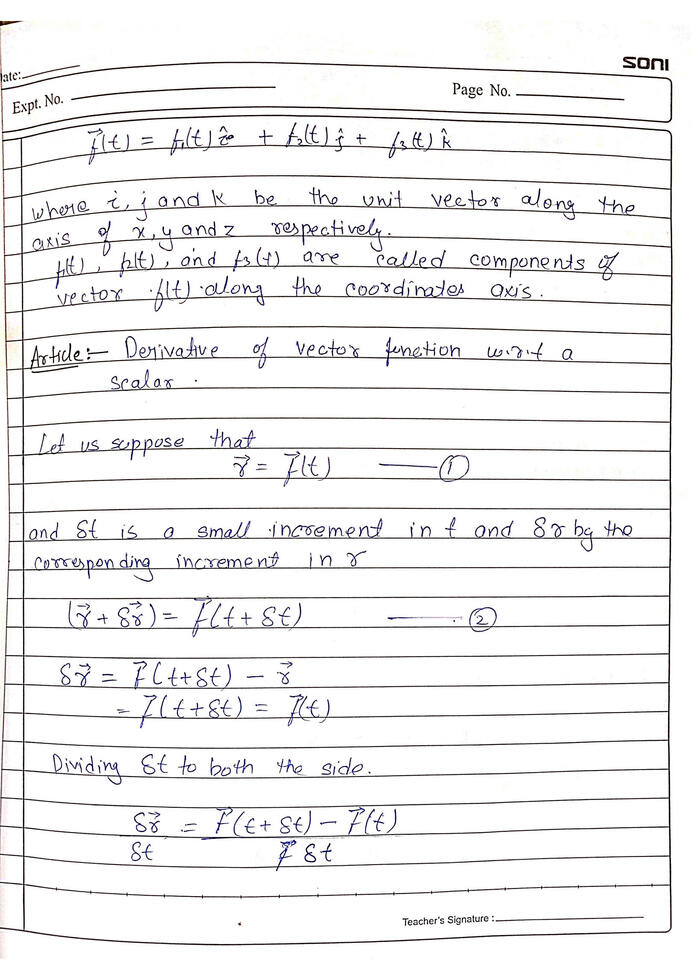 SONI
ate:
Expt. No.
Page No.
f⃗(t) = f₁(t) î + f₂(t) ĵ + f₃(t) k̂
where i, j and k be the unit vector along the
axis of x, y and z respectively.
f₁(t), f₂(t), and f₃(t) are called components of
vector f(t) along the coordinates axis.
Article:- Derivative of vector function w.r.t a
scalar.
Let us suppose that
r⃗ = f⃗(t) —— ①
and δt is a small increment in t and δr bg the
corresponding increment in r
(r⃗ + δr⃗) = f⃗(t + δt) —— ②
δr⃗ = f⃗(t+δt) − r⃗
= f⃗(t+δt) = f⃗(t)
Dividing δt to both the side.
δr⃗ = f⃗(t + δt) − f⃗(t)
δt δt
Teacher's Signature :